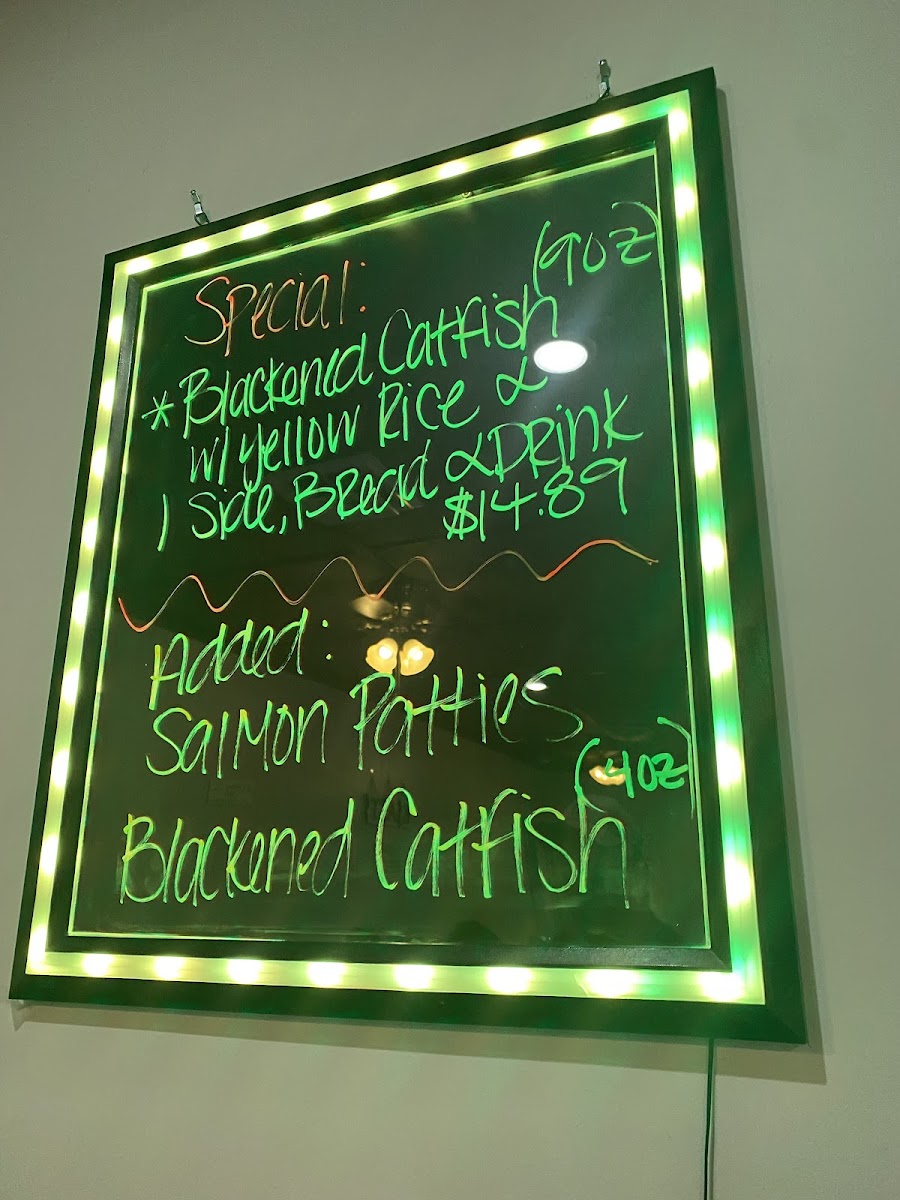 Special:
(9oz)
* Blackened Catfish
w/ Yellow Rice &
1 Side, Bread & Drink
$14.89
Added:
Salmon Patties
(4oz)
Blackened Catfish